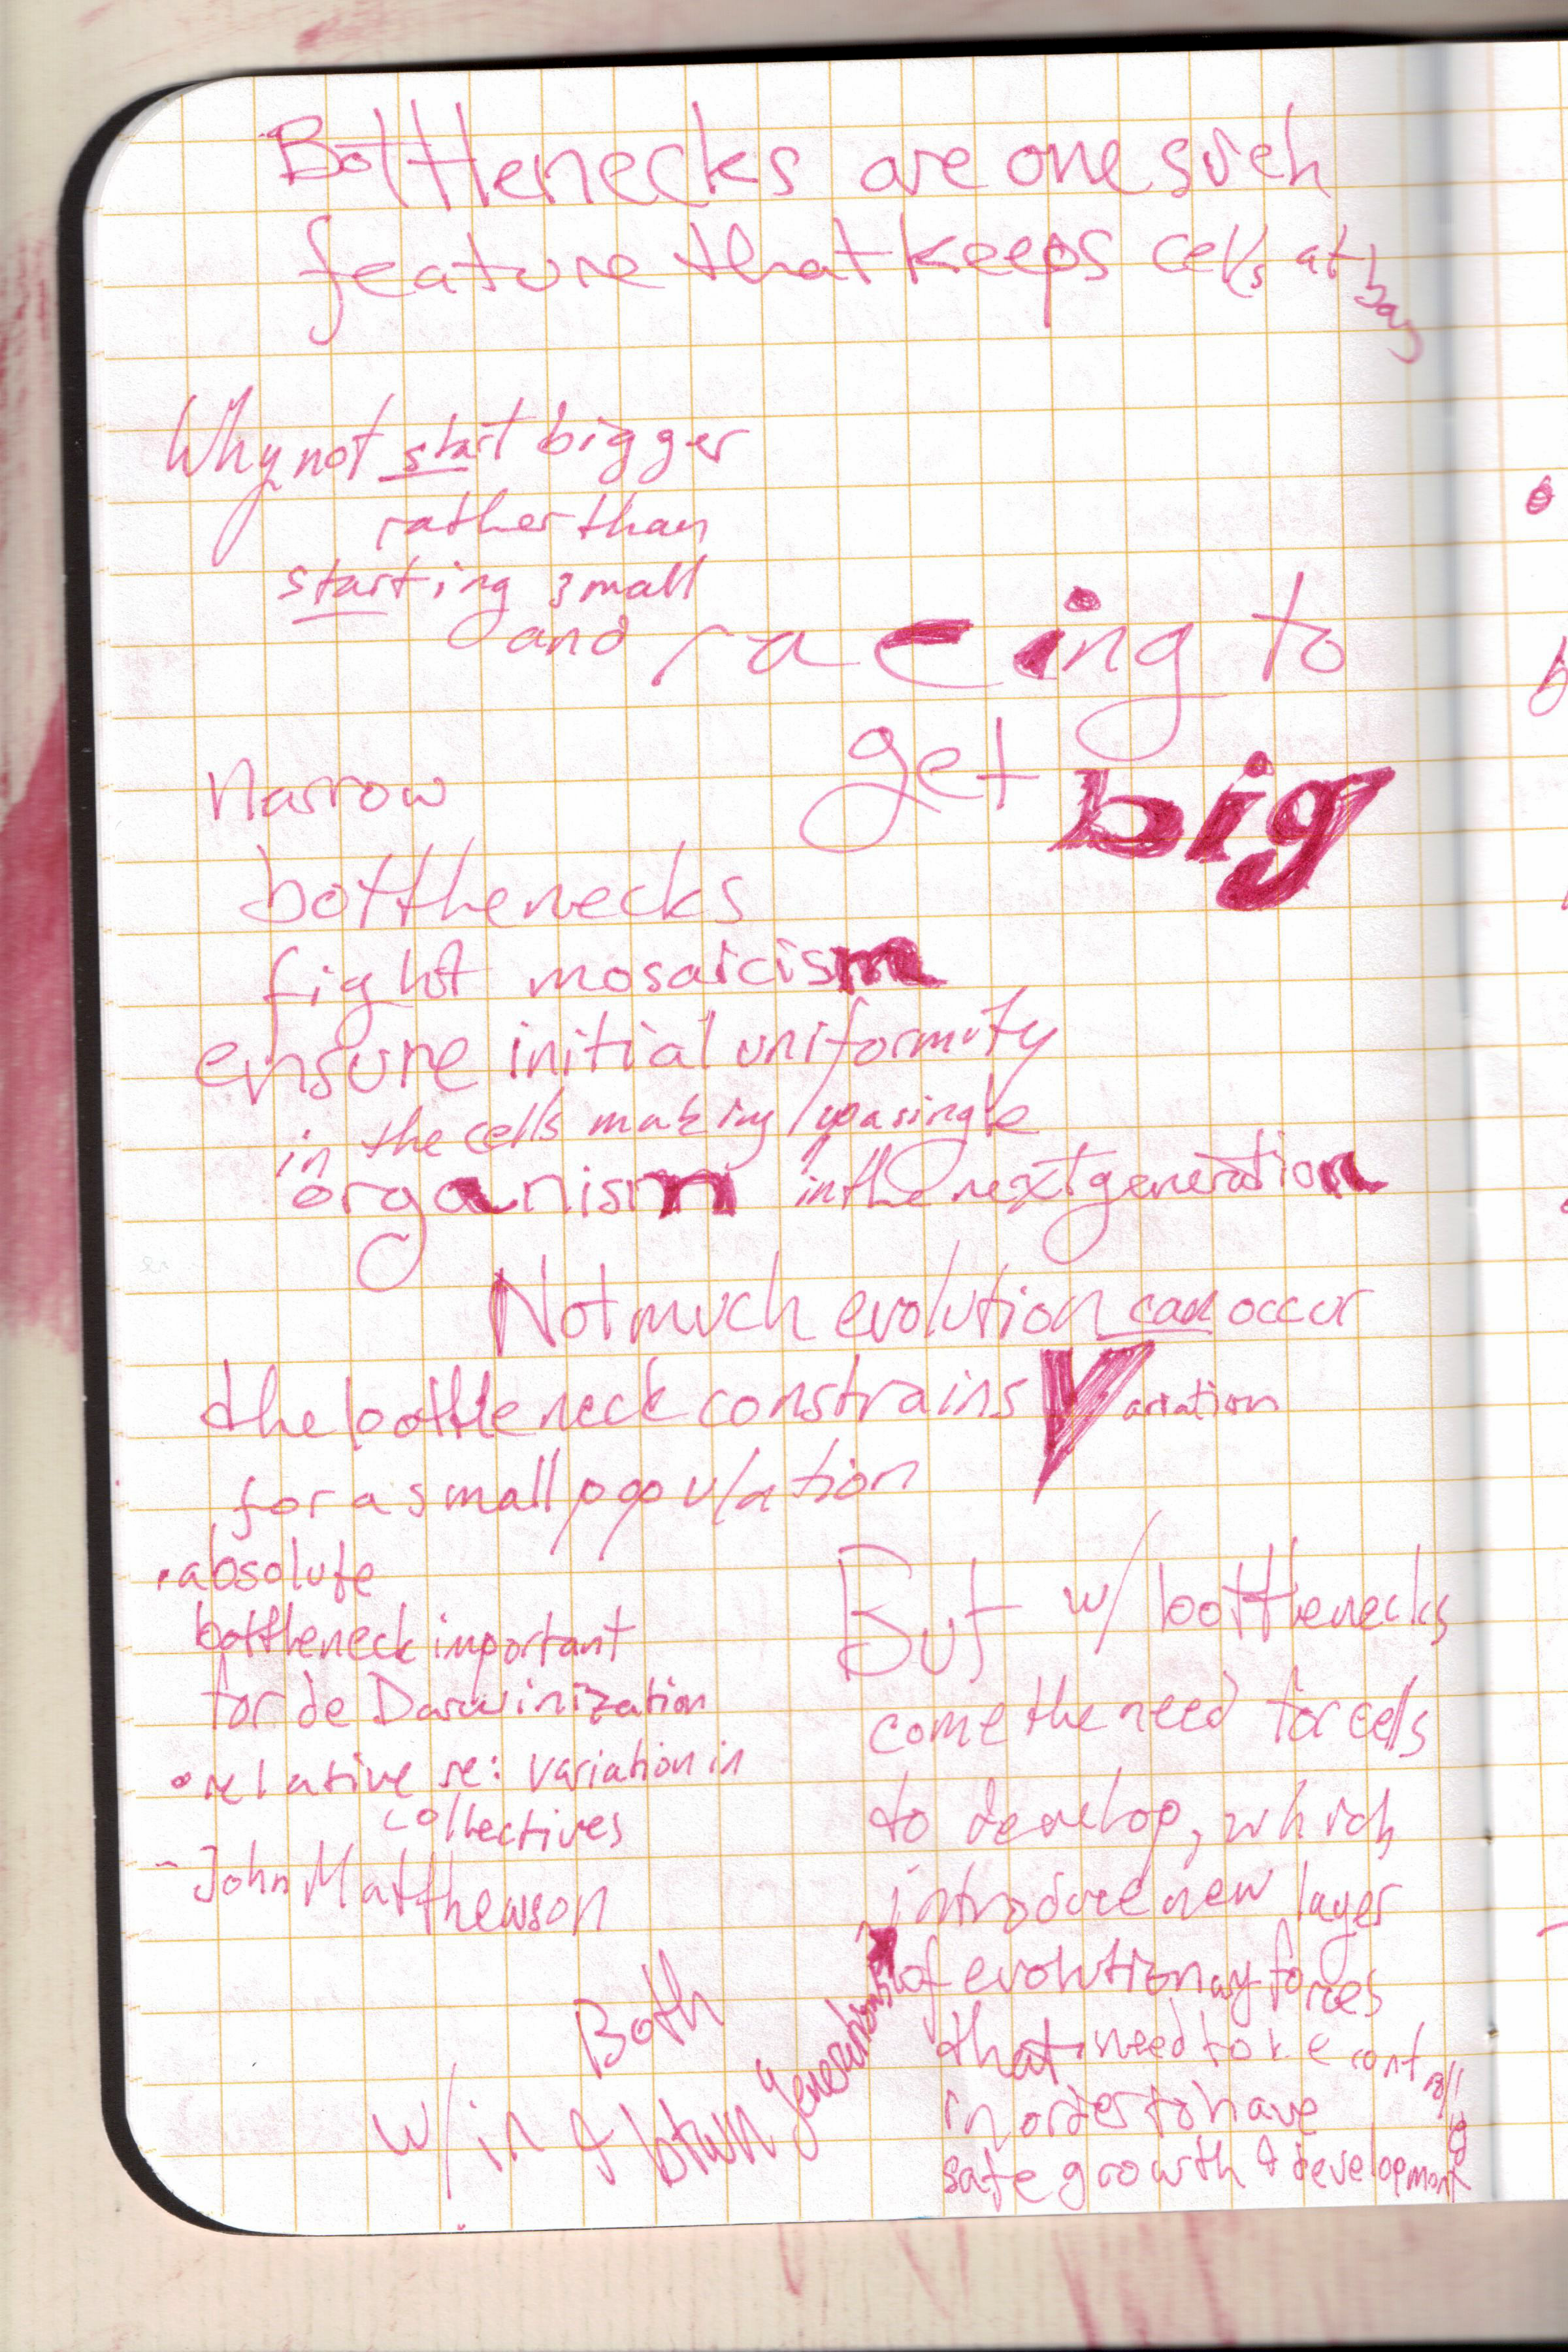 Bottlenecks are one such
feature that keeps cells at bay
Why not start bigger
rather than
starting small
and racing to
get big
Narrow
bottlenecks
fight mosaicism
ensure initial uniformity
in the cells making up a single
organism in the next generation
Not much evolution can occur
the bottleneck constrains Variation
for a small population
• absolute
bottleneck important
for de Darwinization
• relative re: variation in
collectives
- John Matthewson
But w/ bottlenecks
come the need for cells
to develop, which
introduce new layer
of evolutionary forces
that need to be controlled
in order to have
safe growth & development
Both
w/in & btwn generations